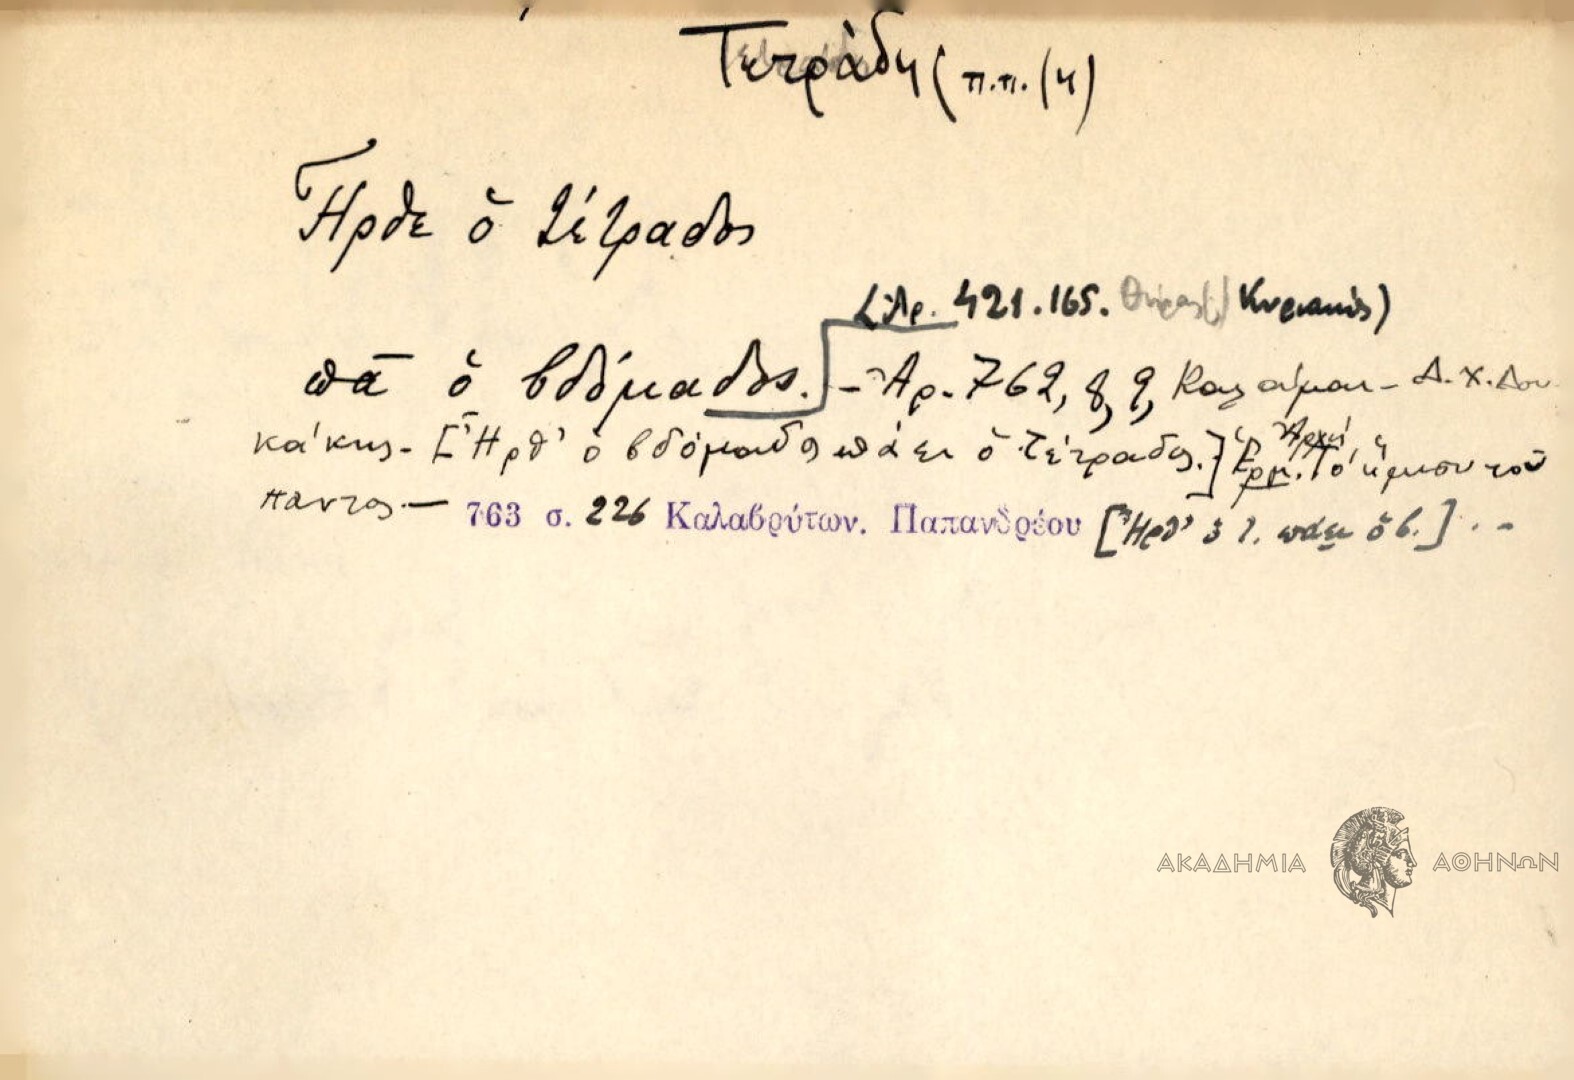 Τετράδη (π.π. (4)
Ἦρθε ὁ τέτραδος
Ἀρ. 421.165. Θήρας( Κυριακός)
πά ὁ βδόμαδος. – Ἀρ. 762, 8, 9, Καλάμαι – Δ. Χ. Δου
κάκης – [Ἦρθ' ὁ βδόμαδος πάει ὁ τέτραδος.] Ἑρμ. Ἀρχή τὸ ἥμισυ τοῦ
παντος. — 763 σ. 226 Καλαβρύτων. Παπανδρέου [Ἦρθ' ὁ τ. πάει ὁ β.] . –
ΑΚΑΔΗΜΙΑ ΑΘΗΝΩΝ